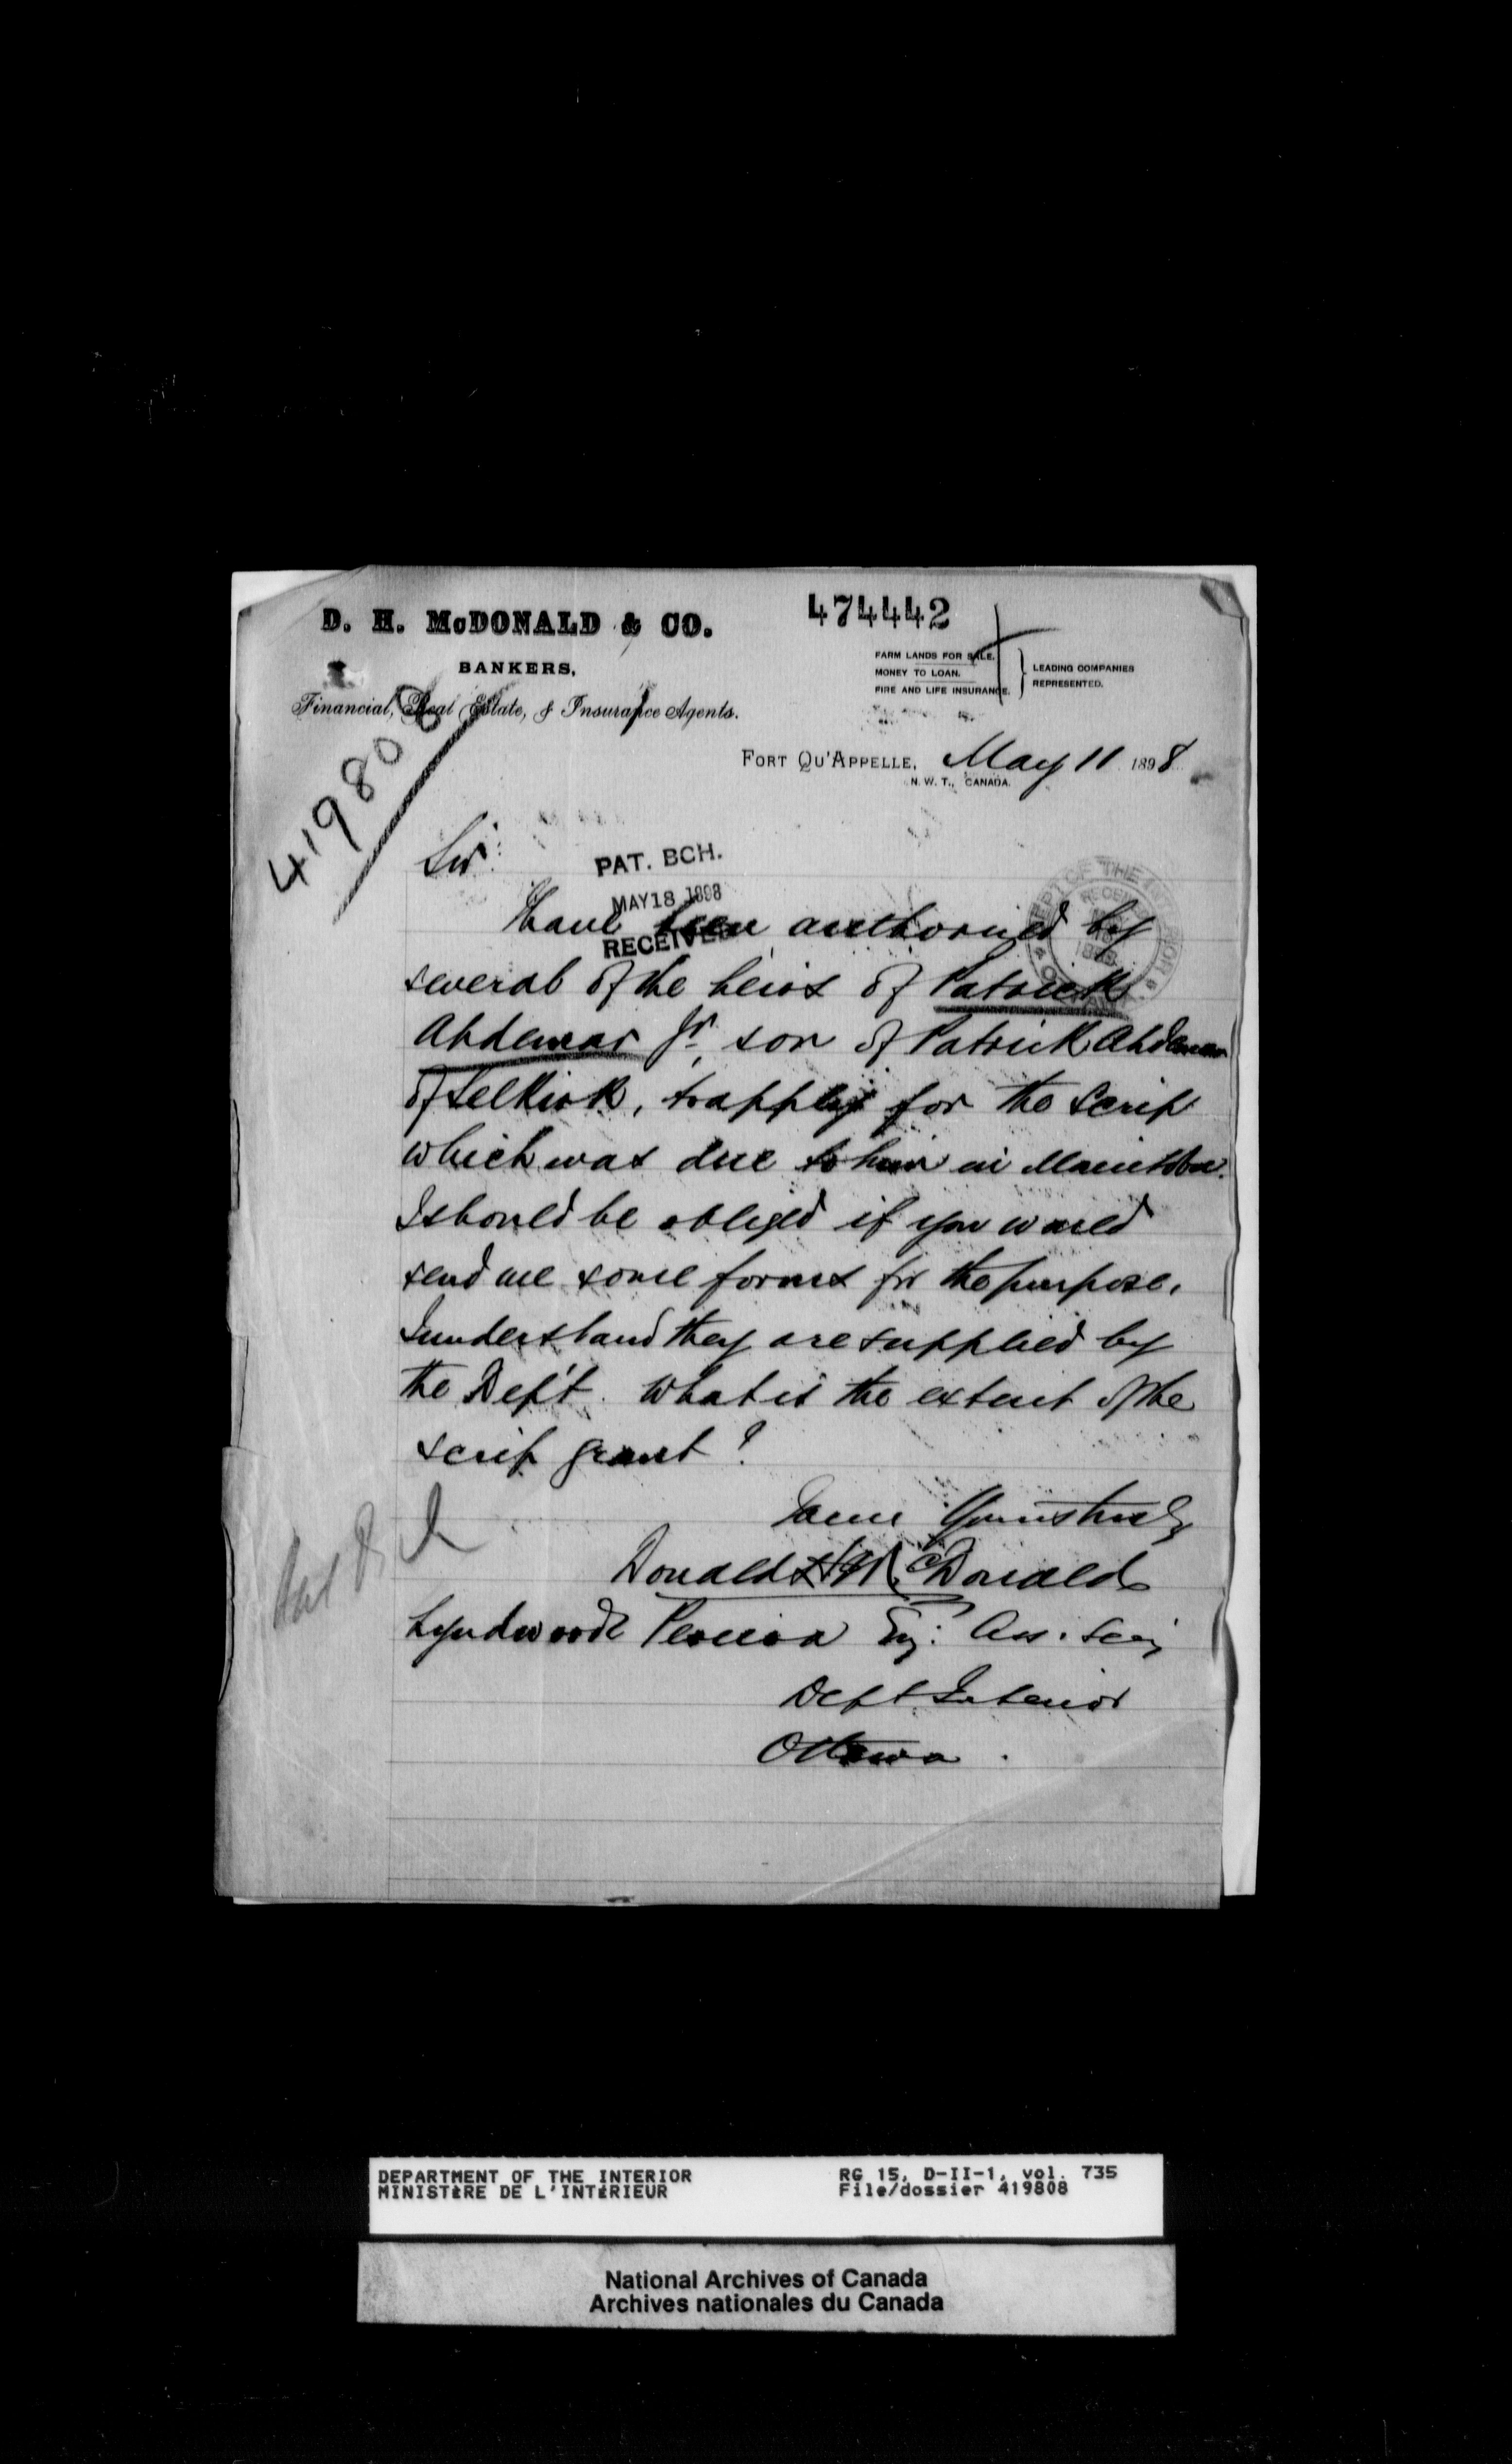 D. H. McDONALD & CO.
474442
BANKERS,
Financial, Real Estate, & Insurance Agents.
FARM LANDS FOR SALE.
MONEY TO LOAN.
FIRE AND LIFE INSURANCE.
LEADING COMPANIES
REPRESENTED.
FORT QU'APPELLE, May 11 1898
N. W. T., CANADA.
419808
Sir:
PAT. BCH.
MAY 18 1898
RECEIVED
DEPT OF THE INTERIOR
RECEIVED
OTTAWA
I have been authorized by
several of the heirs of Patrick
Ahdemar Jr. son of Patrick Ahdemar
of Selkirk, to apply for the Scrip
which was due to him in Manitoba.
I should be obliged if you would
send me some forms for the purpose.
I understand they are supplied by
the Dep't. What is the extent of the
scrip grant?
I am Yours truly
Donald H McDonald
Lyndwoode Pereira Esq: Ass. Secy
Dept Interior
Ottawa.
DEPARTMENT OF THE INTERIOR
MINISTÈRE DE L'INTÉRIEUR
RG 15, D-II-1, vol. 735
File/dossier 419808
National Archives of Canada
Archives nationales du Canada